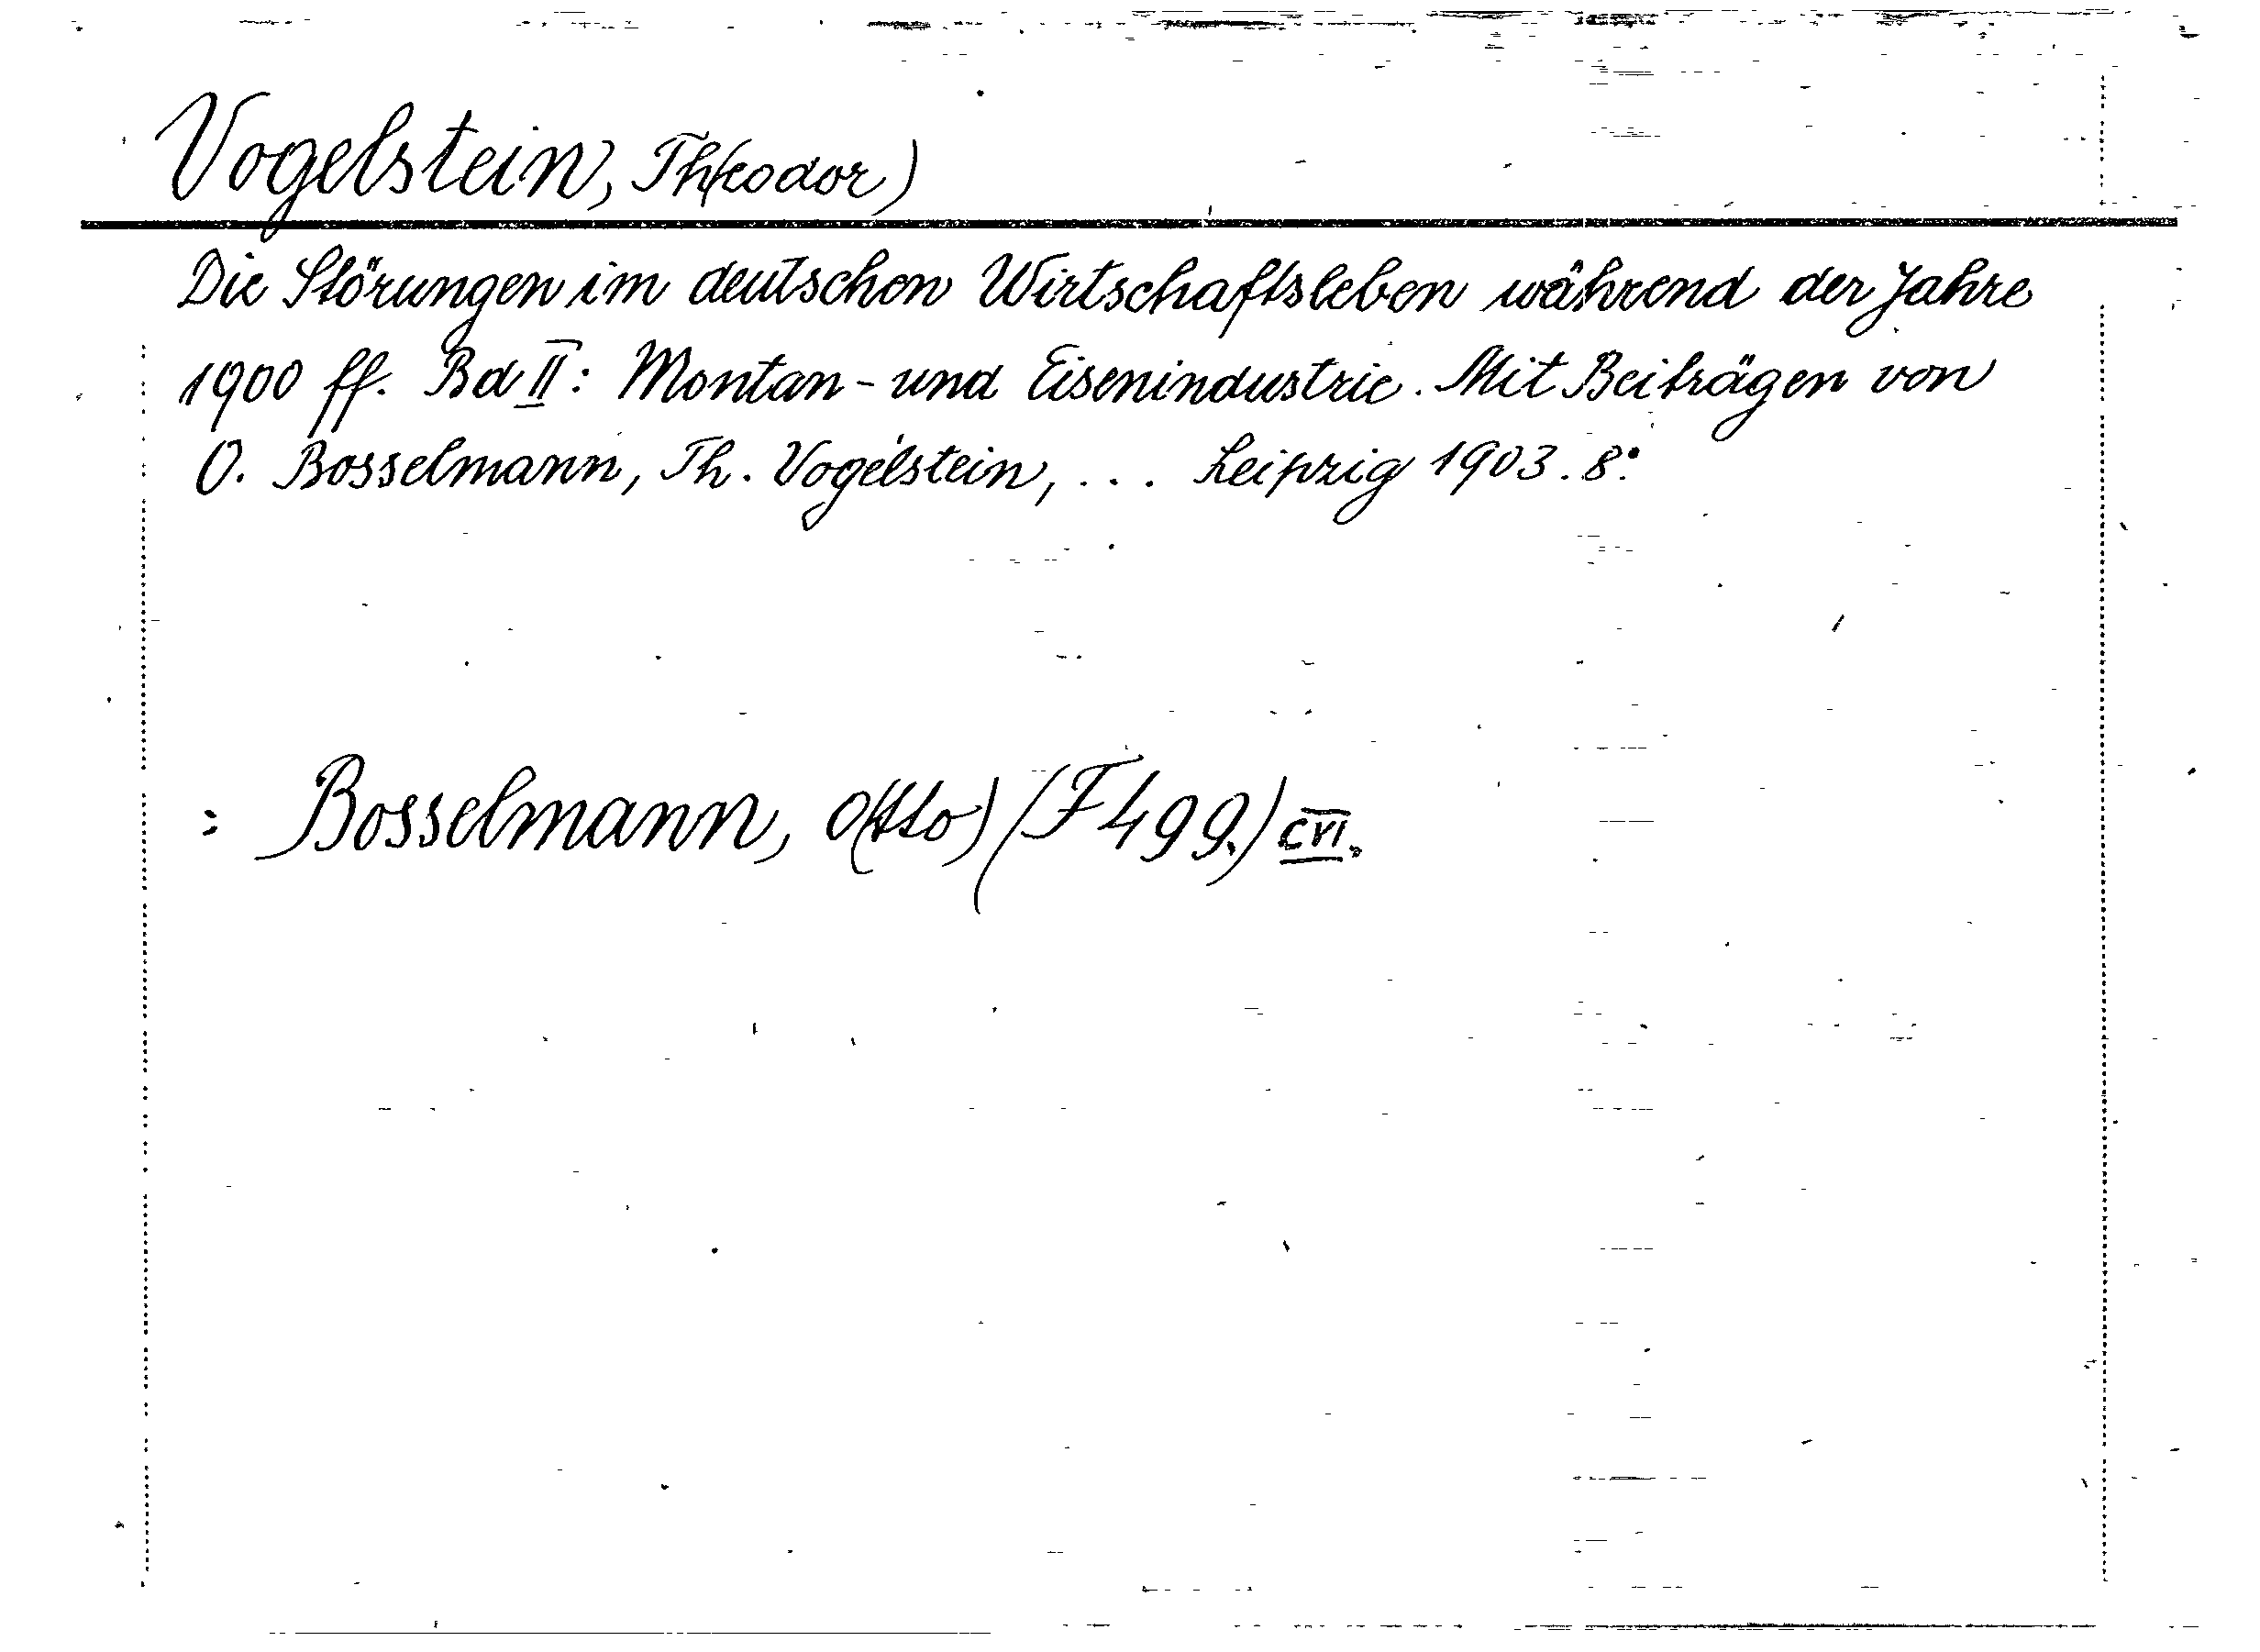 Vogelstein, Th(eodor)
Die Störungen im deutschen Wirtschaftsleben während der Jahre
1900 ff. Bd II: Montan- und Eisenindustrie. Mit Beiträgen von
O. Bosselmann, Th. Vogelstein, ... Leipzig 1903. 8°.
= Bosselmann, O(tto) (F 499.) CVI.